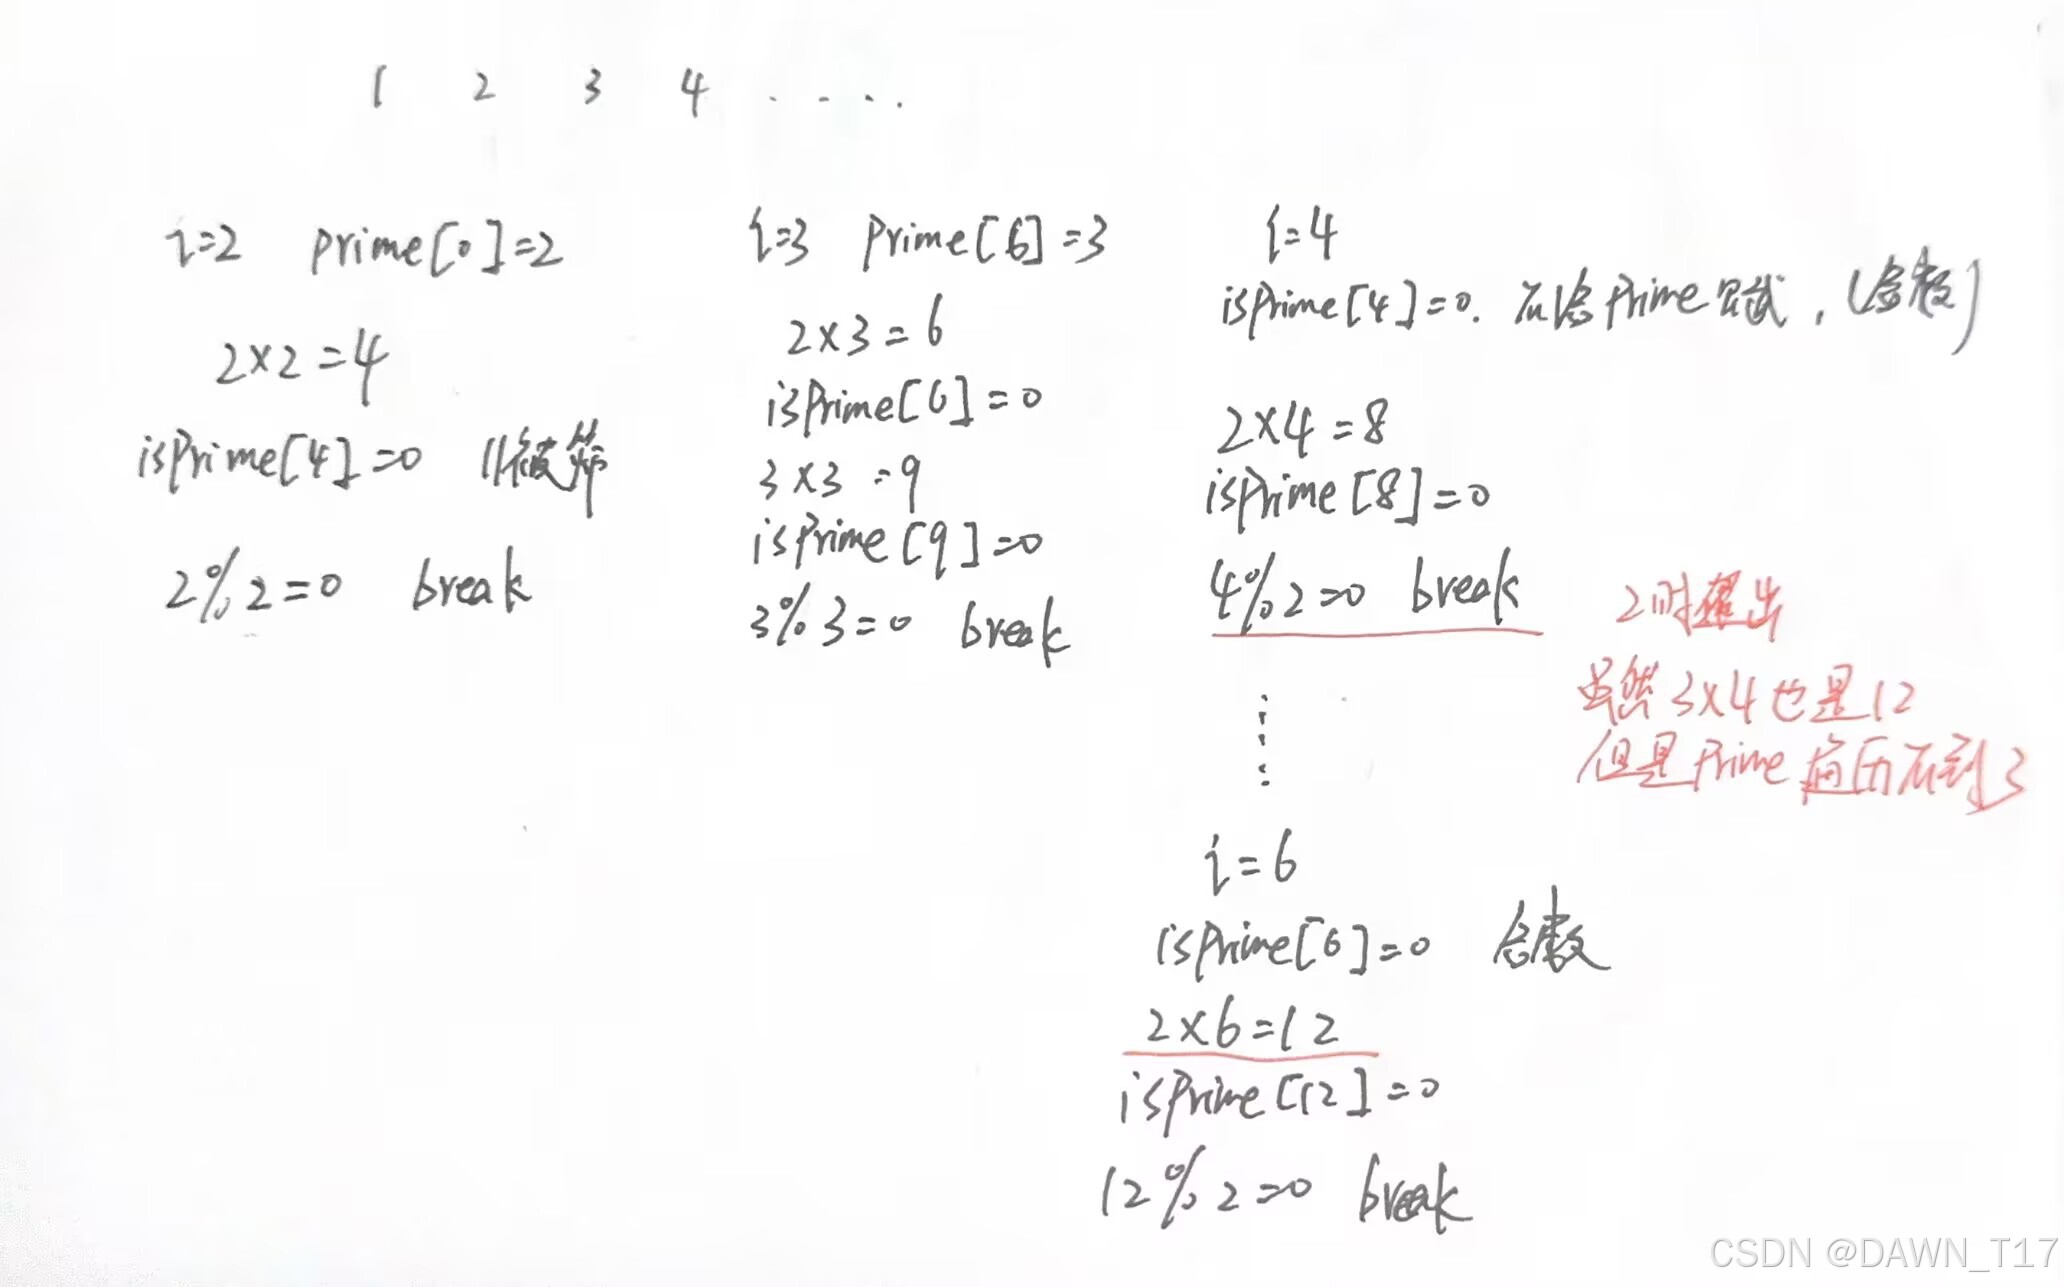 1 2 3 4 ·····
i=2 prime[0]=2
2×2=4
isPrime[4]=0 //被筛
2%2=0 break
i=3 prime[6]=3
2×3=6
isPrime[6]=0
3×3=9
isPrime[9]=0
3%3=0 break
i=4
isPrime[4]=0. 不给Prime赋, (合数)
2×4=8
isPrime[8]=0
4%2=0 break
2时跳出
虽然3×4也是12
但是Prime遍历不到3
i=6
isPrime[6]=0 合数
2×6=12
isPrime[12]=0
12%2=0 break
CSDN @DAWN_T17